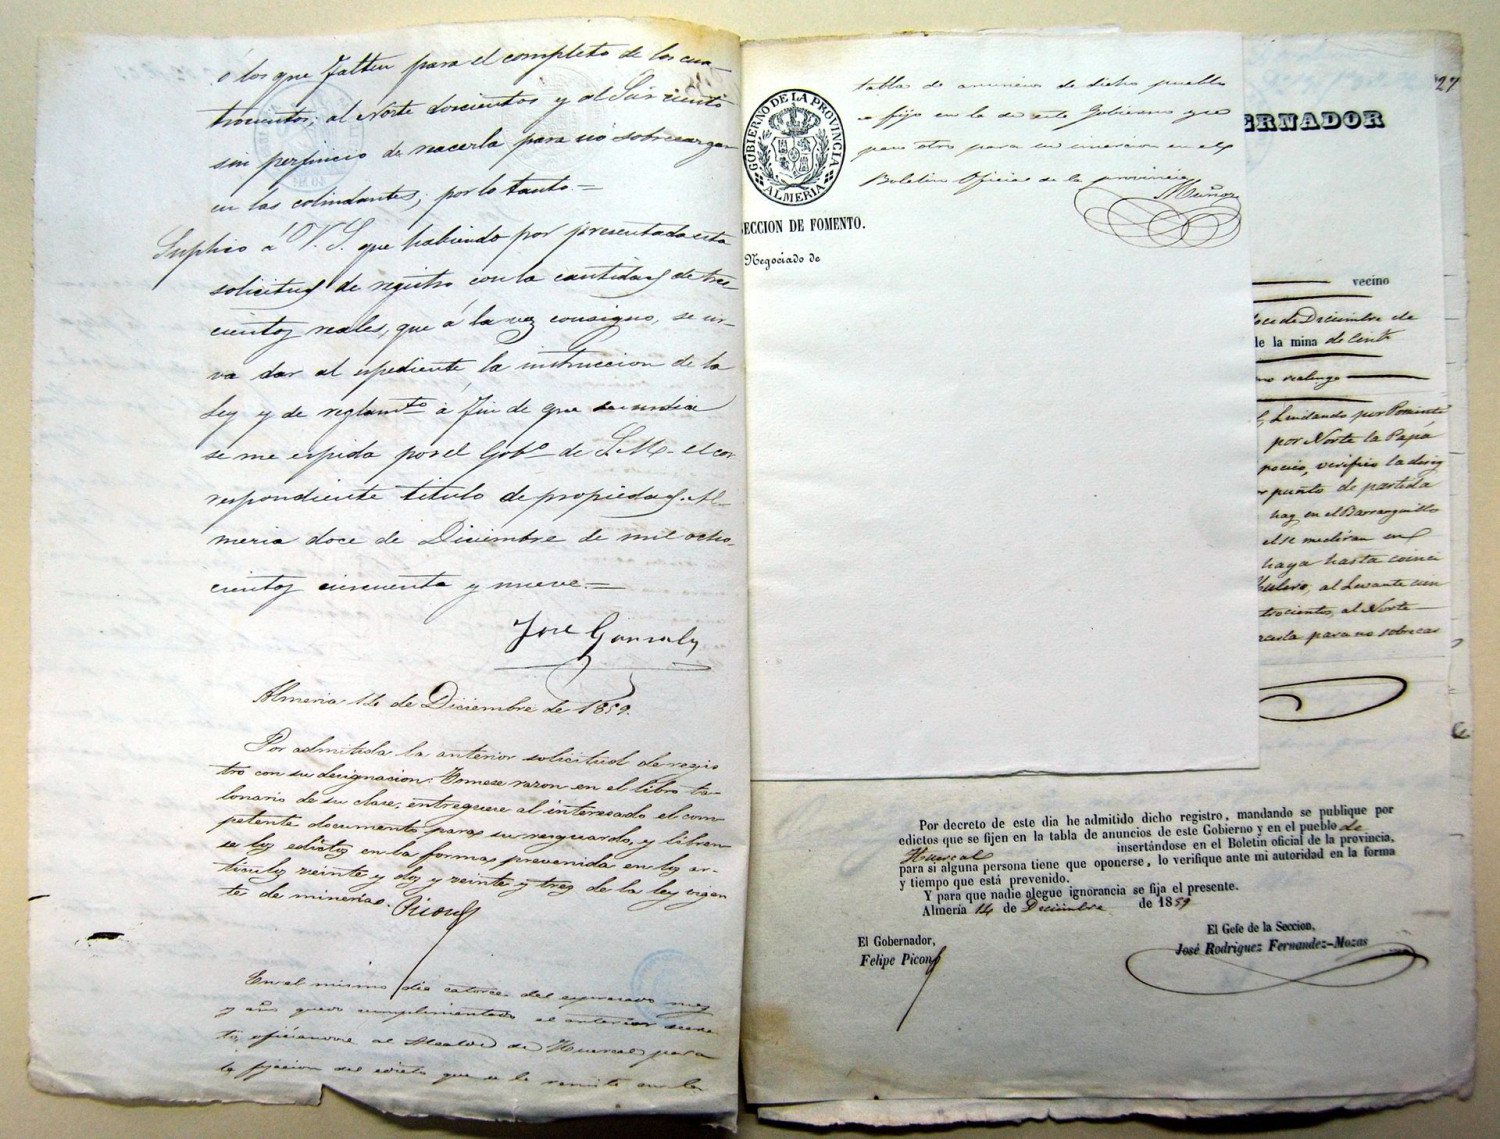 ó los que falten para el completo de los cua-
trocientos; al Norte doscientos y al Sur ciento
sin perjuicio de reacerla para no sobrecargar
en las colindantes; por lo tanto=
Suplico á V. S. que habiendo por presentada esta
solicitud de registro con la cantidad de tres-
cientos reales, que á la vez consigno, se sir-
va dar al espediente la instruccion de la
Ley y de reglamto á fin de que
se me espida por el Gobo de S. M. el cor
respondiente titulo de propiedad. Al-
meria doce de Diciembre de mil ocho-
cientos cincuenta y nueve=
José Gonzalez
Almeria 14 de Diciembre de 1859.
Por admitida la anterior solicitud de regis
tro con su designacion. Tomese razon en el libro ta-
lonario de su clase, entreguese al interesado el com-
petente documento para su resguardo, y libren-
se los edictos en la forma prevenida en los ar-
ticulos veinte y dos y veinte y tres de la ley vigen
te de mineria. Picon
En el mismo dia catorce del espresado mes
y año quedó cumplimentado el anterior decre
to, oficiandose al Alcalde de Huercal para
la fijacion del edicto que se le remite en la
GOBIERNO DE LA PROVINCIA
ALMERIA
SECCION DE FOMENTO.
Negociado de
tabla de anuncios de dicho pueblo
se fijó en la de este Gobierno y se
para otro para su insercion en el
Boletin Oficial de la provincia
Muñoz
27
ERNADOR
vecino
doce de Diciembre de
de la mina de
no realengo
Lindando por Poniente
por Norte la Papá
verifico la desig
punto de partida
hay en el Barranquillo
el se mediran en
haya hasta coinci
al Levante
trocientos, al Norte
acerla para no sobrecar
Por decreto de este dia he admitido dicho registro, mandando se publique por
edictos que se fijen en la tabla de anuncios de este Gobierno y en el pueblo de
Huercal insertándose en el Boletin oficial de la provincia,
para si alguna persona tiene que oponerse, lo verifique ante mi autoridad en la forma
y tiempo que está prevenido.
Y para que nadie alegue ignorancia se fija el presente.
Almería 14 de Diciembre de 1859
El Gobernador,
Felipe Picon
El Gefe de la Seccion,
José Rodriguez Fernandez-Mozas